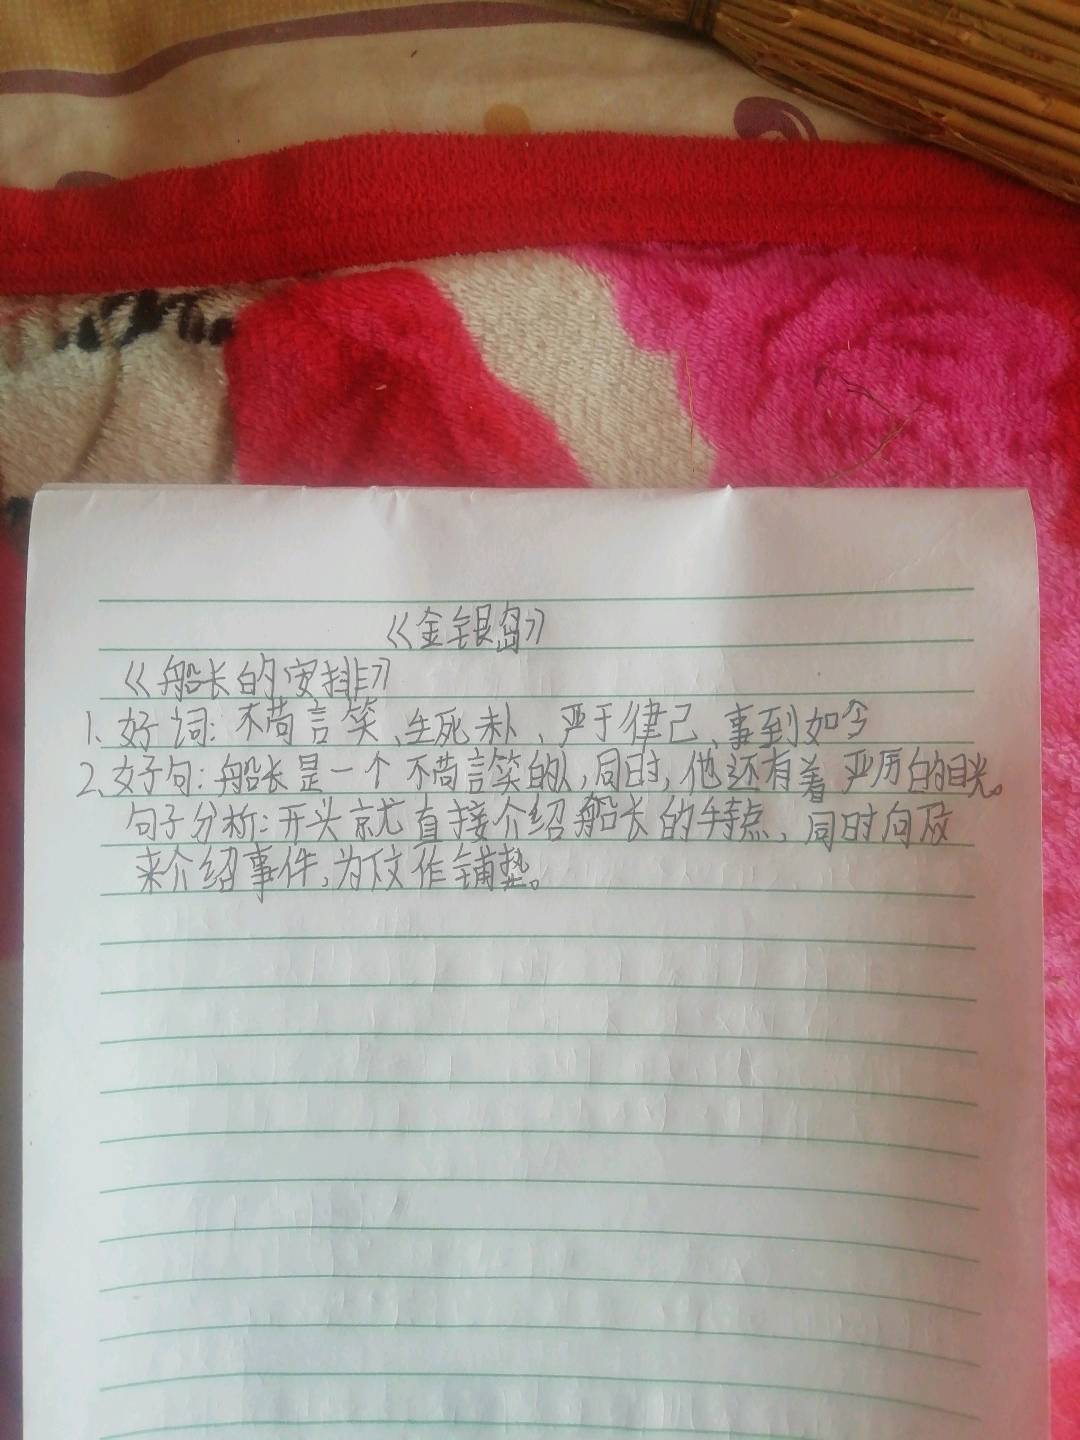 《金银岛》
《船长的安排》
1、好词：不苟言笑、生死未卜、严于律己、事到如今
2、好句：船长是一个不苟言笑的人，同时，他还有着严厉的目光。
句子分析：开头就直接介绍船长的特点，同时向反
来介绍事件，为下文作铺垫。